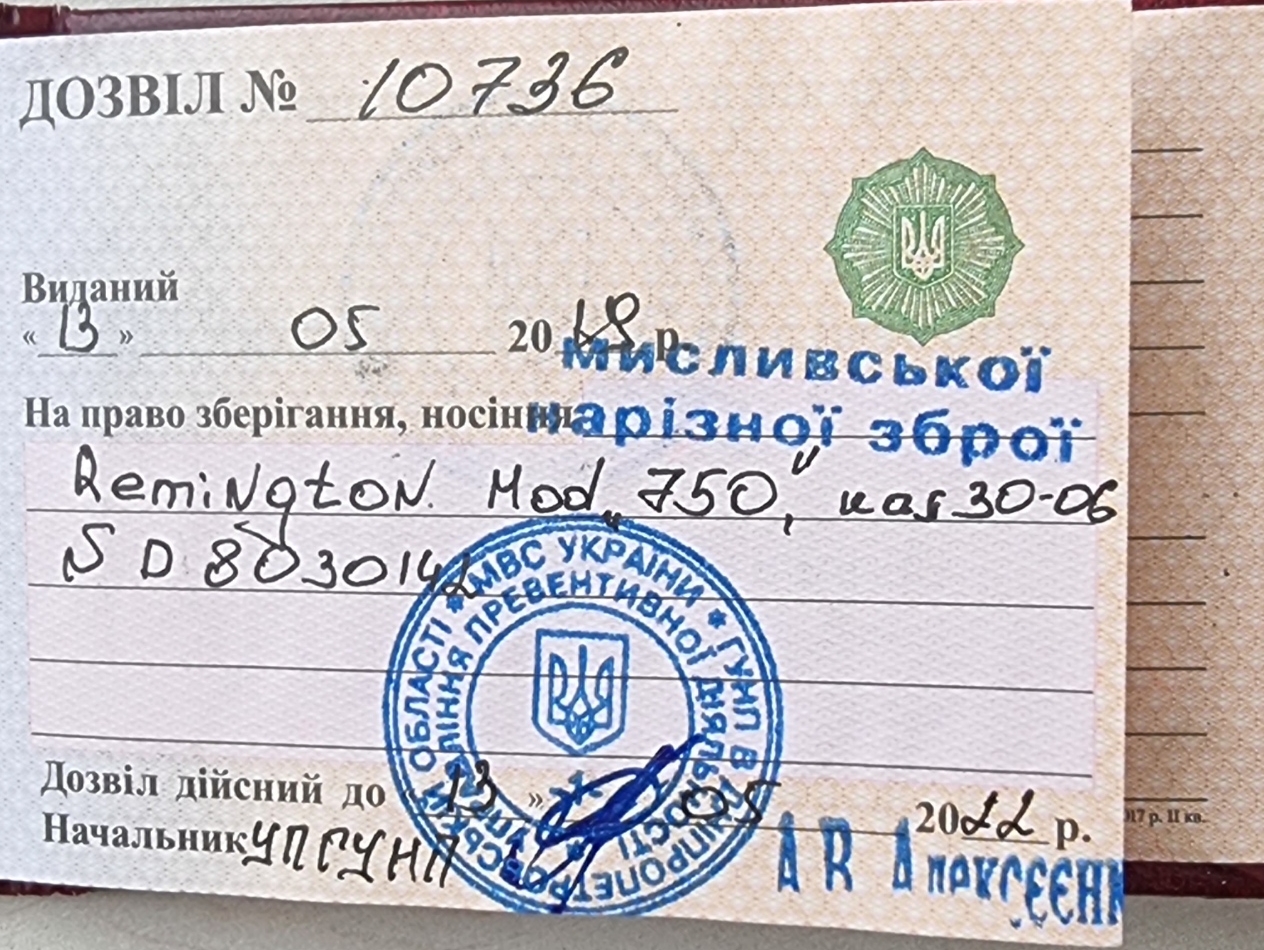 ДОЗВІЛ № 10736
Виданий
« 13 » 05 2019 р.
мисливської
На право зберігання, носіння нарізної зброї
Remington. Mod „750", кал 30-06
S D 8030142
* МВС УКРАЇНИ * ГУНП В ДНІПРОПЕТРОВСЬКІЙ ОБЛАСТІ
УПРАВЛІННЯ ПРЕВЕНТИВНОЇ ДІЯЛЬНОСТІ
Дозвіл дійсний до « 13 » 05 2022 р.
Начальник УПГУНП
17 р. II кв.